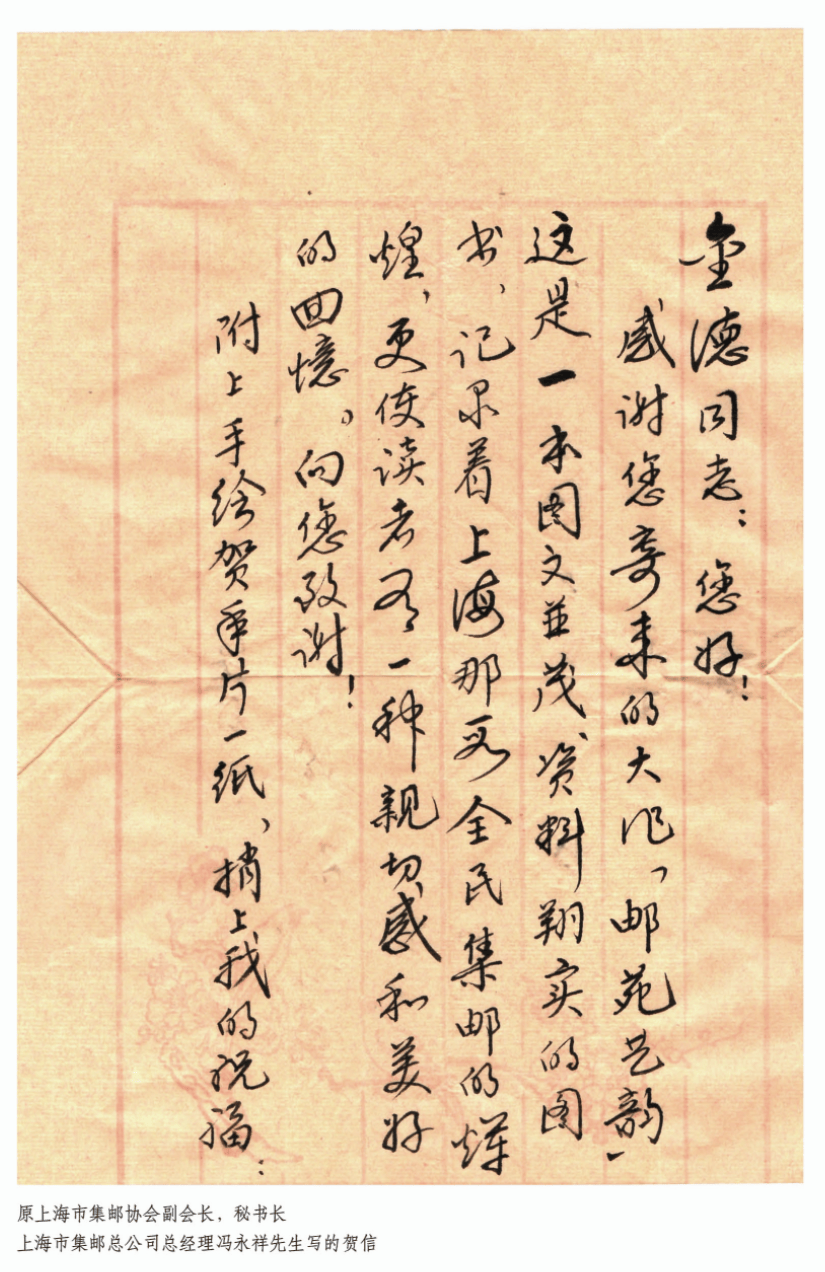 金德同志：您好！
感谢您寄来的大作，邮苑艺韵，
这是一本图文並茂、资料翔实的图
书，记录着上海那段全民集邮的辉
煌，更使读者有一种亲切感和美好
的回憶。向您致谢！
附上手绘贺年片一纸、捎上我的祝福：
原上海市集邮协会副会长，秘书长
上海市集邮总公司总经理冯永祥先生写的贺信